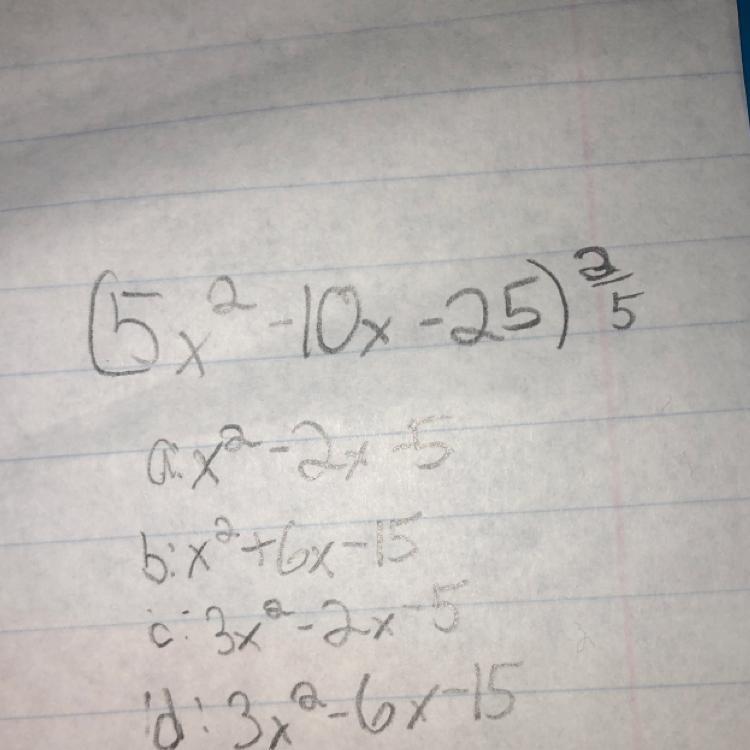 (5x² -10x -25)^2/5
a: x² -2x -5
b: x² +6x -15
c: 3x² -2x -5
d: 3x² -6x -15